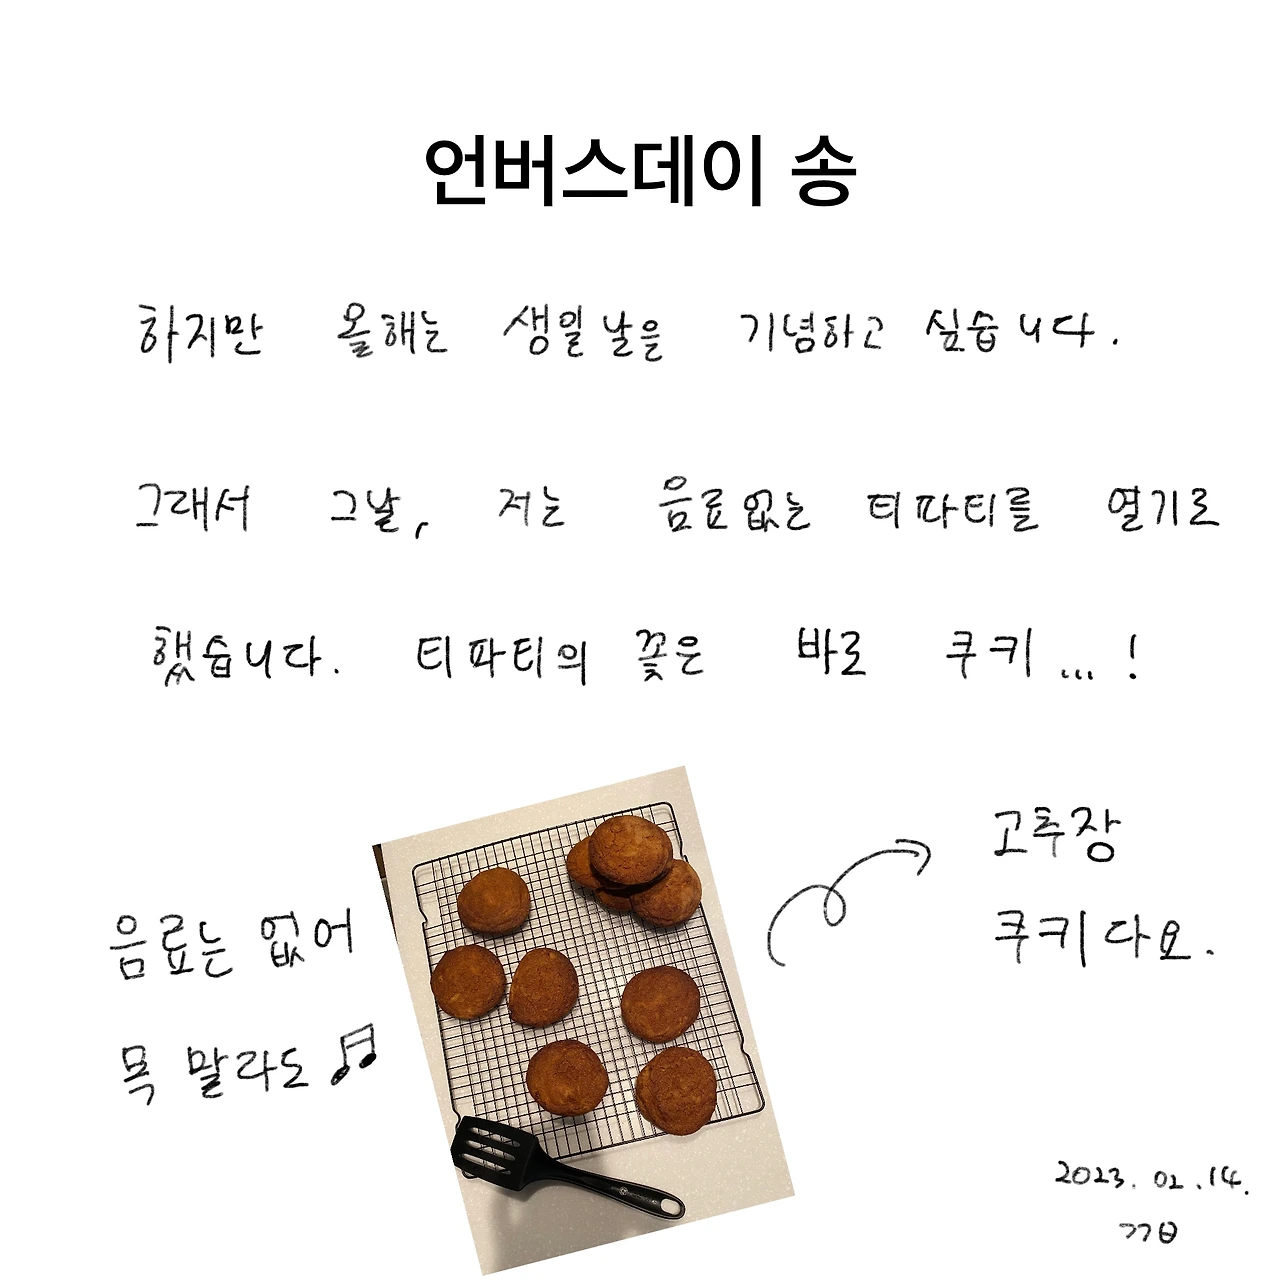 언버스데이 송
하지만 올해는 생일날을 기념하고 싶습니다.
그래서 그날, 저는 음료없는 티파티를 열기로
했습니다. 티파티의 꽃은 바로 쿠키...!
고추장
쿠키다요.
음료는 없어
목 말라도
2023. 02. 14.